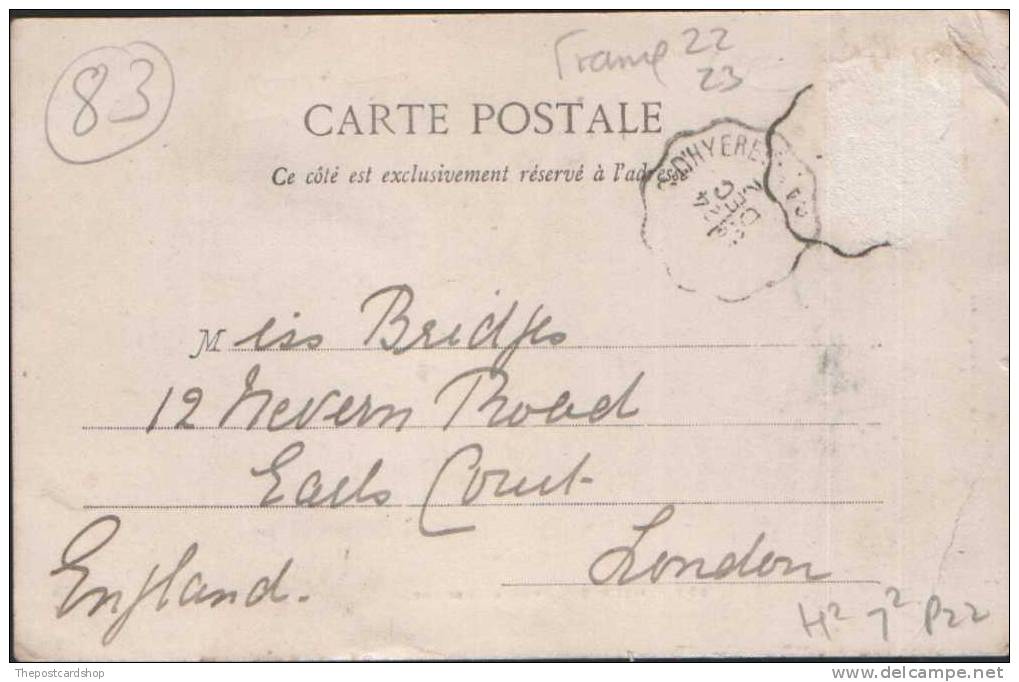 83
France 22
23
CARTE POSTALE
Ce côté est exclusivement réservé à l'adresse
D'HYERE
2
DEC
Miss Bridges
12 Nevern Road
Earls Court
London
England.
H2 72 P22
Thepostcardshop
delcampe.net